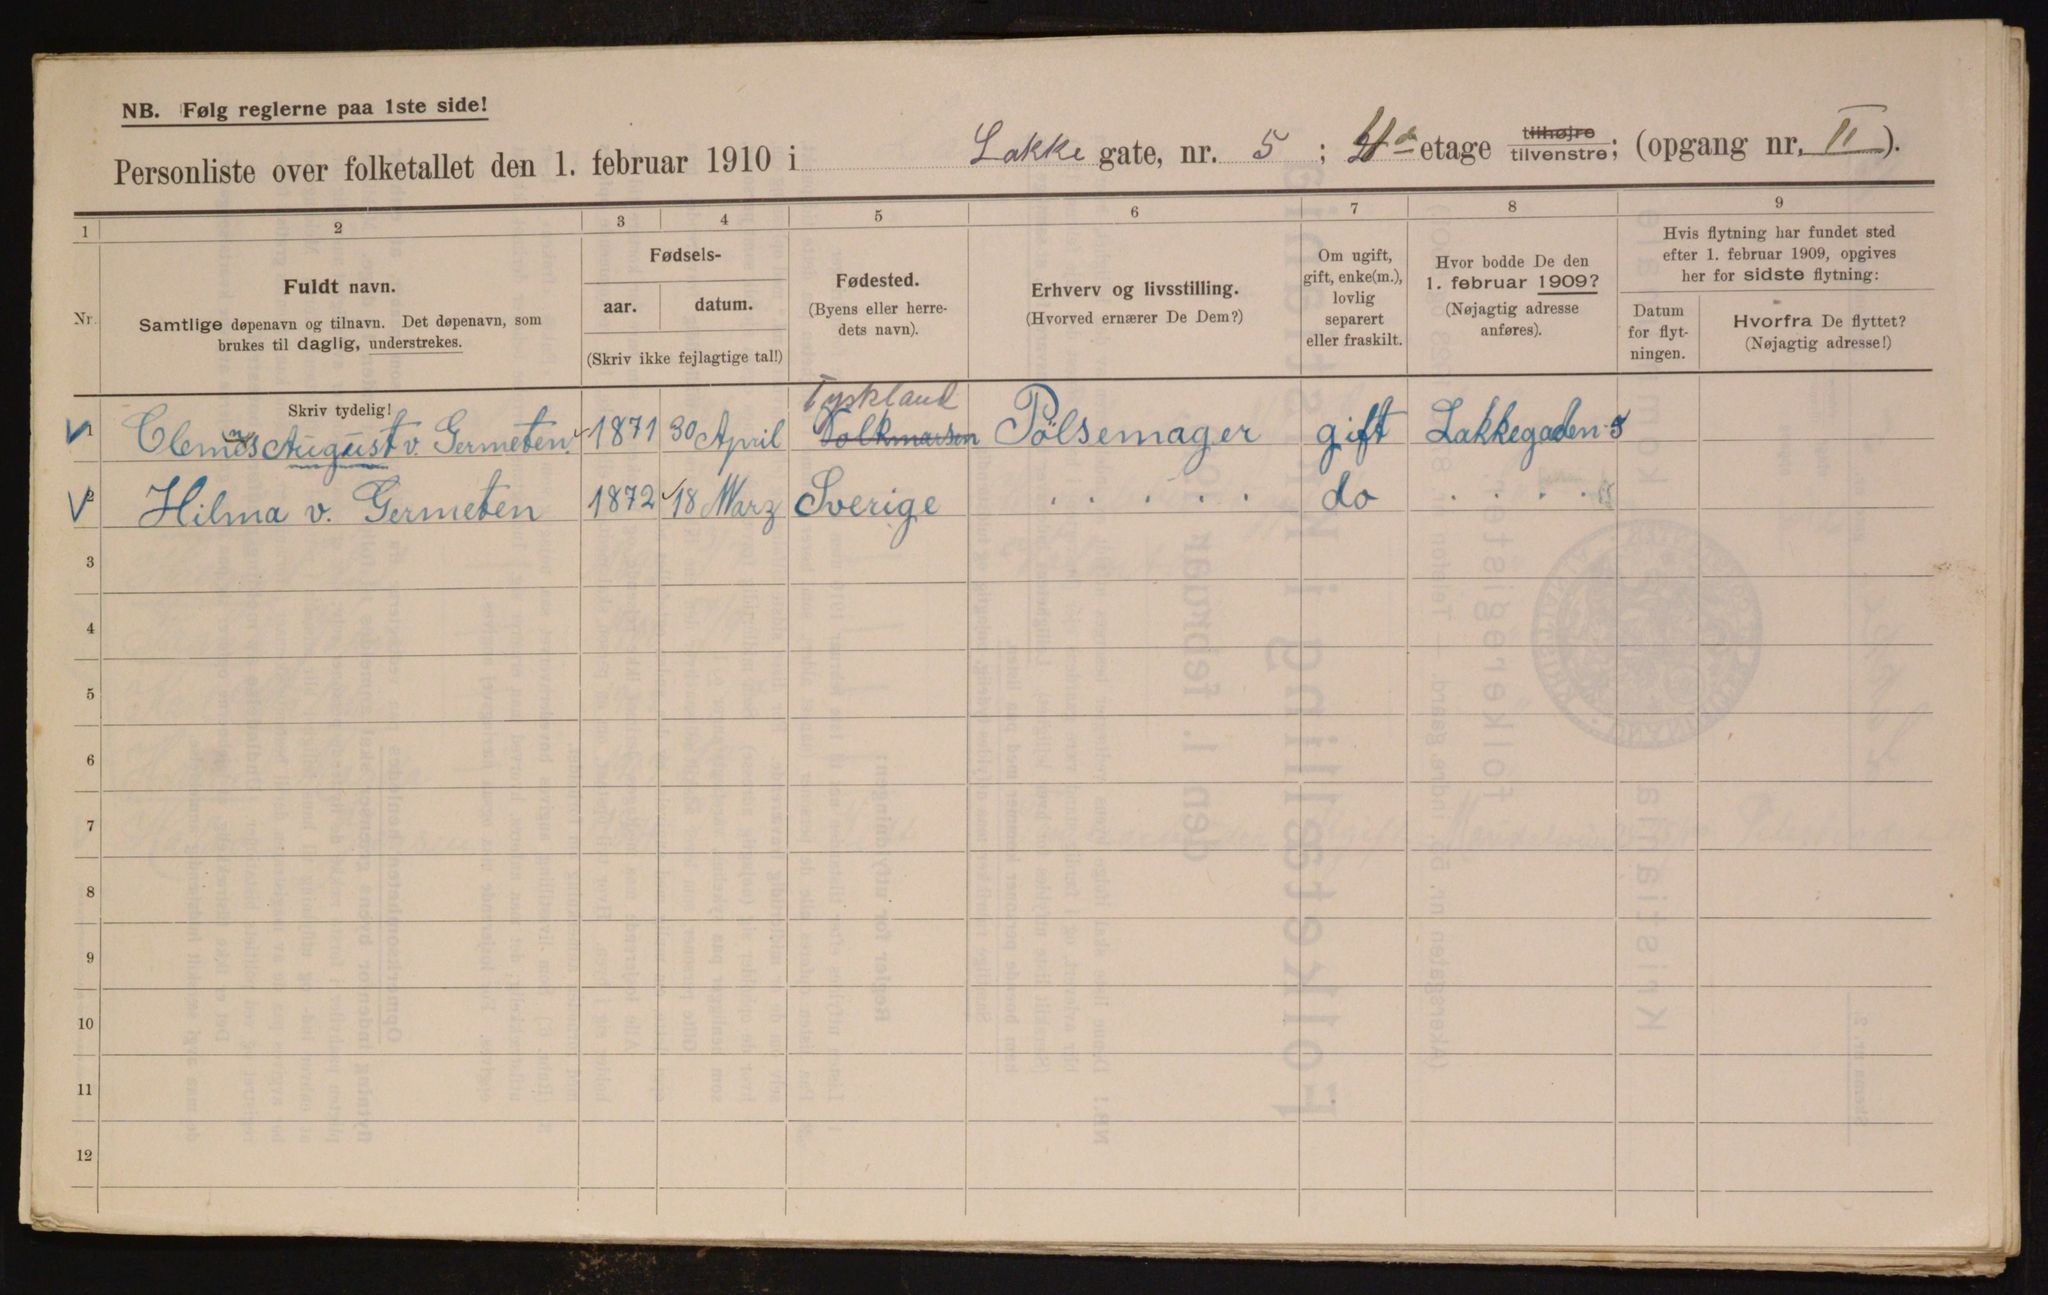 NB. Følg reglerne paa 1ste side!
Personliste over folketallet den 1. februar 1910 i Lakke gate, nr. 5 ; etage tilhøjre tilvenstre; (opgang nr. II ).
1 2 3 4 5 6 7 8 9
Nr.
Fuldt navn.
Samtlige døpenavn og tilnavn. Det døpenavn, som
brukes til daglig, understrekes.
Fødsels-
aar. datum.
(Skriv ikke fejlagtige tal!)
Fødested.
(Byens eller herre-
dets navn).
Erhverv og livsstilling.
(Hvorved ernærer De Dem?)
Om ugift,
gift, enke(m.),
lovlig
separert
eller fraskilt.
Hvor bodde De den
1. februar 1909?
(Nøjagtig adresse
anføres).
Hvis flytning har fundet sted
efter 1. februar 1909, opgives
her for sidste flytning:
Datum
for flyt-
ningen.
Hvorfra De flyttet?
(Nøjagtig adresse!)
Skriv tydelig!
Tyskland
1 Clemens August v. Germeten 1871 30 April Volkmarsen Pölsemager gift Lakkegaden 5
2 Hilma v. Germeten 1872 18 Marz Sverige . . . . . do . . . .
3
4
5
6
7
8
9
10
11
12